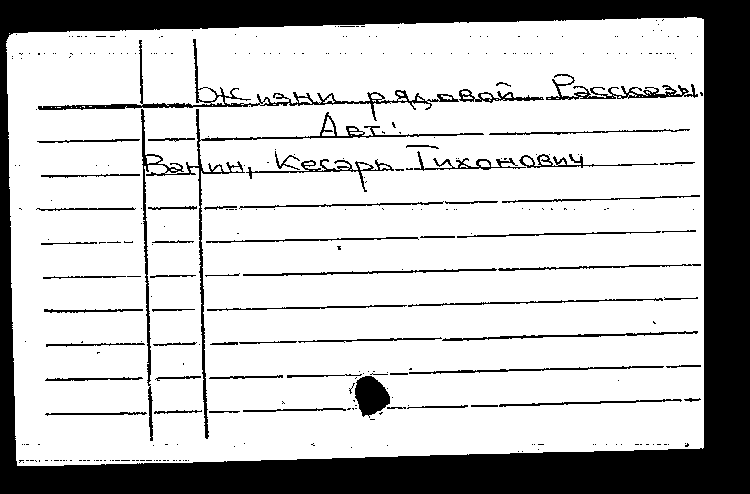 Жизни рядовой. Рассказы.
Авт.:
Ванин, Кесарь Тихонович